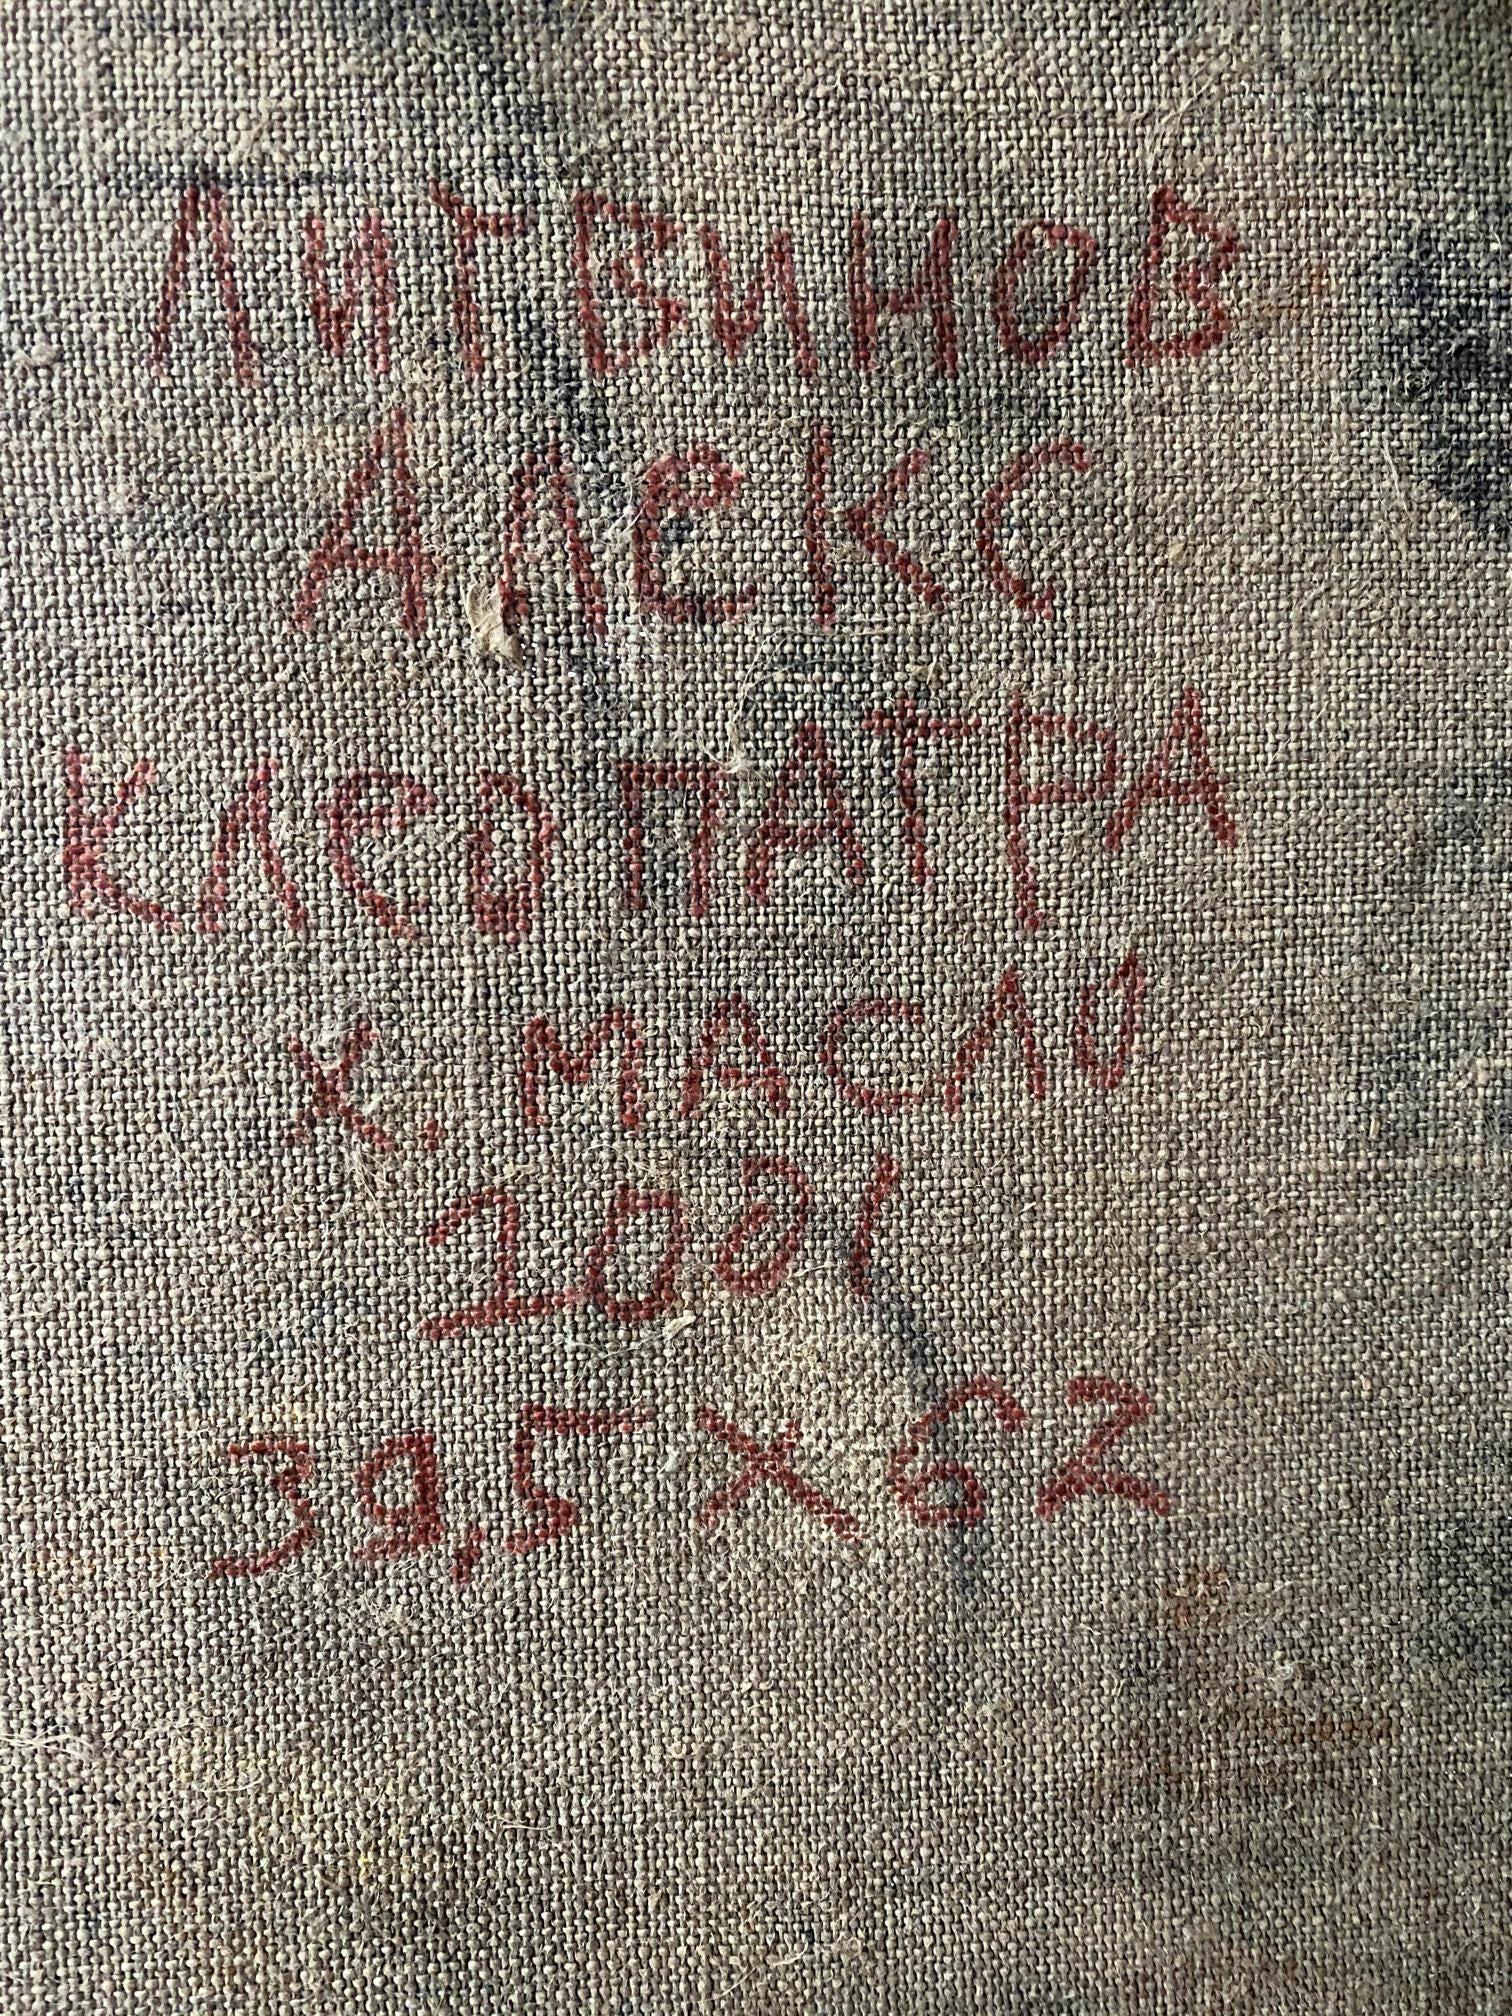 ЛИТВИНОВ
АЛЕКС
КЛЕОПАТРА
Х. МАСЛО
39,5 X 62